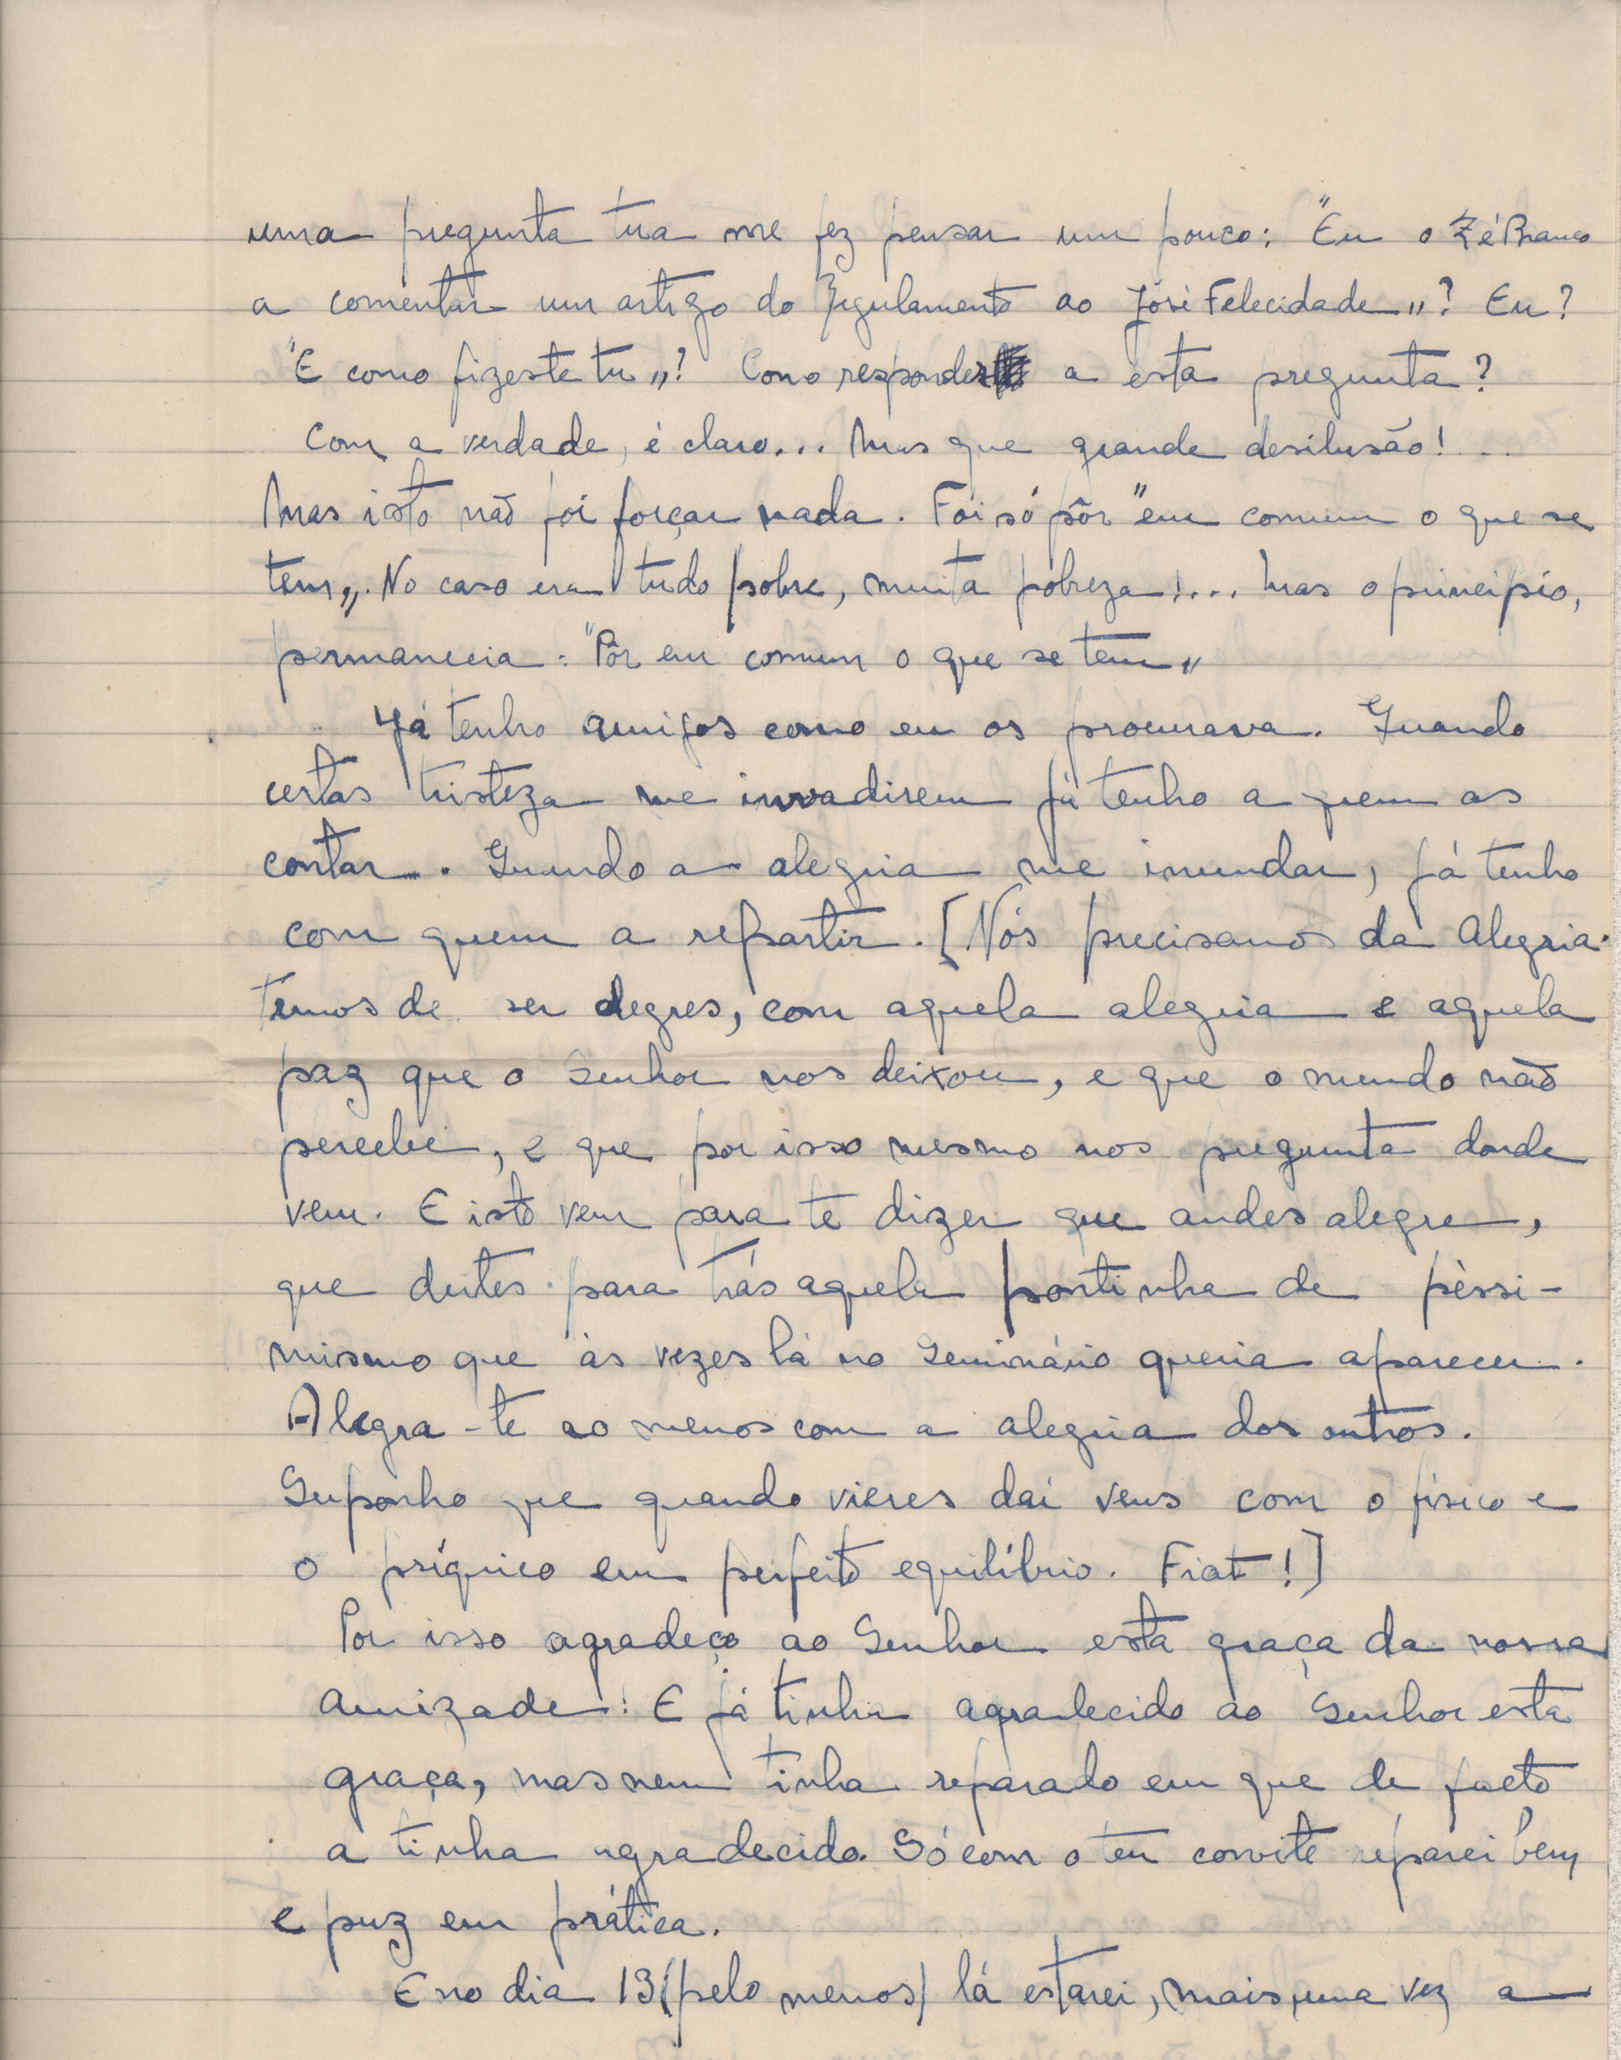 uma pregunta tua me fez pensar um pouco: "Eu o Zé Branco
a comentar um artigo do Regulamento ao José Felecidade"? Eu?
"E como fizeste tu"? Como responder a esta pregunta?
Com a verdade, é claro... Mas que grande desilusão!...
Mas isto não foi forçar nada. Foi só pôr "em comum o que se
tem". No caso era tudo pobre, muita pobreza!... Mas o principio,
permanecia: "Pôr em comum o que se tem"
Já tenho amigos como eu os procurava. Quando
certas tristeza me invadirem já tenho a quem as
contar. Quando a alegria me inundar, já tenho
com quem a repartir. [Nós precisamos da Alegria.
temos de ser alegres, com aquela alegria e aquela
paz que o Senhor nos deixou, e que o mundo não
percebe, e que por isso mesmo nos pregunta donde
vem. E isto vem para te dizer que andes alegre,
que deites para trás aquela pontinha de pèssi-
mismo que às vezes lá no Seminário queria aparecer.
Alegra-te ao menos com a alegria dos outros.
Suponho que quando vieres daí vens com o físico e
o psíquico em perfeito equilíbrio. Fiat!]
Por isso agradeço ao Senhor esta graça da nossa
amizade! E já tinha agradecido ao Senhor esta
graça, mas nem tinha reparado em que de facto
a tinha agradecido. Só com o teu convite reparei bem
e puz em prática.
E no dia 13 (pelo menos) lá estarei, mais uma vez a